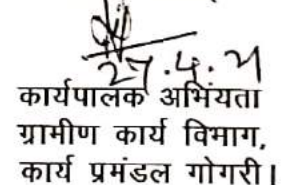 27.4.21
कार्यपालक अभियंता
ग्रामीण कार्य विभाग,
कार्य प्रमंडल गोगरी।